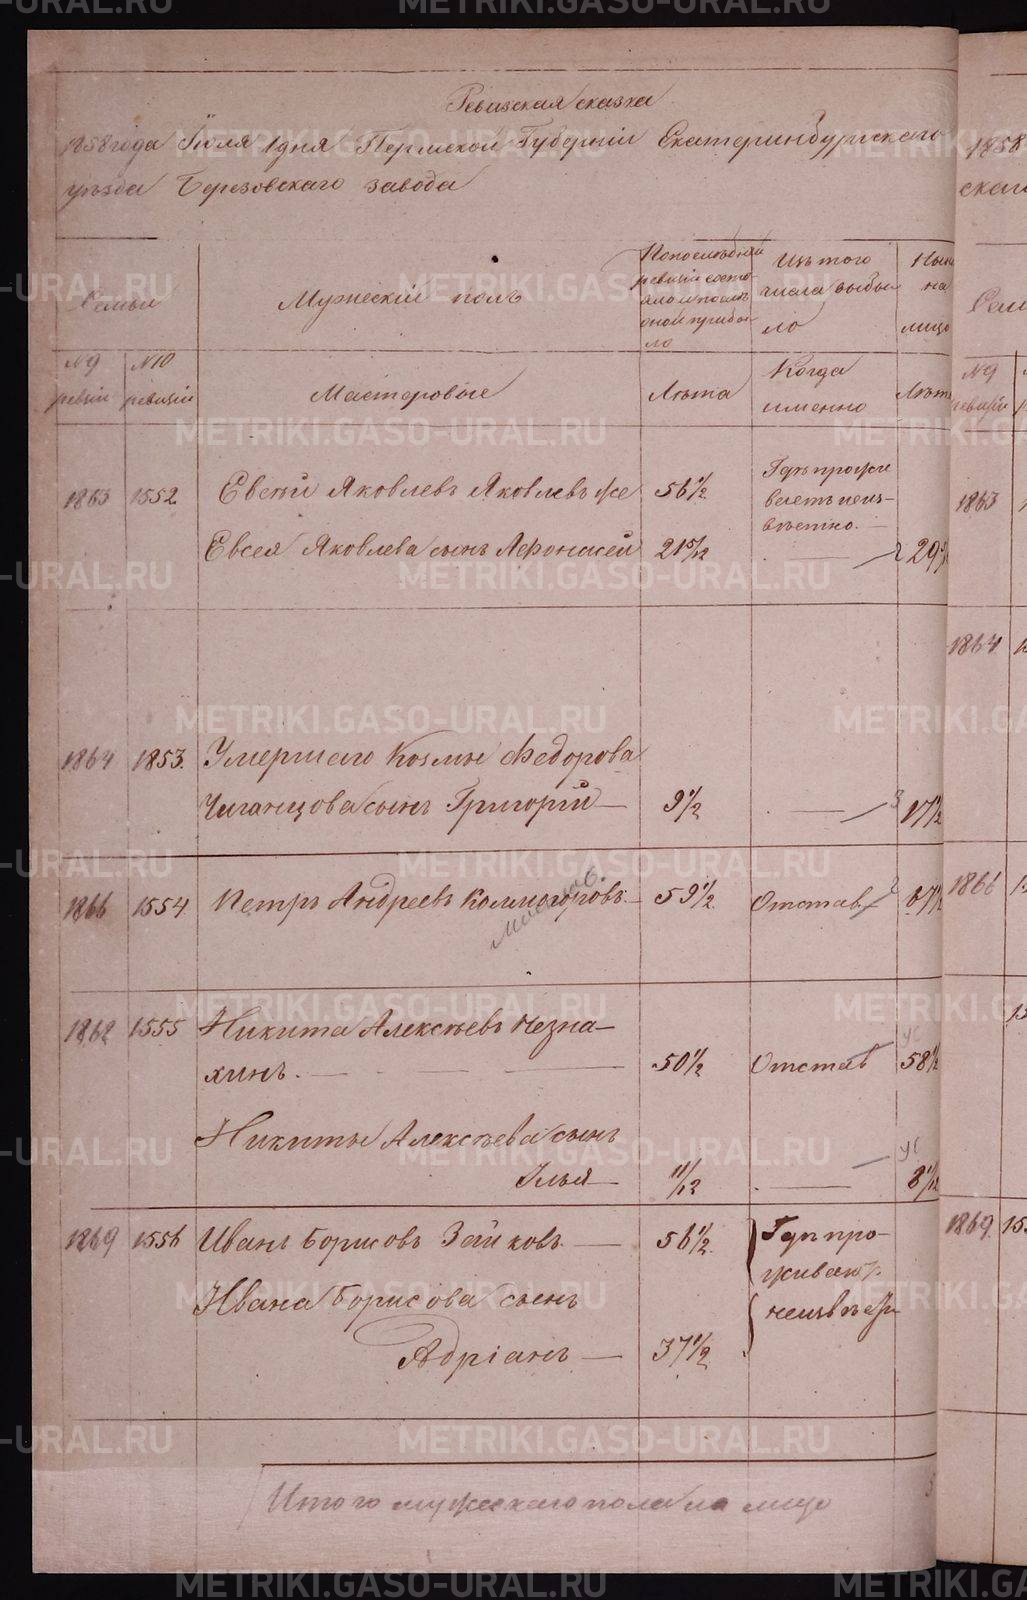 Ревизская сказка
1858 года Июля 1 дня Пермской Губерніи Екатеринбургскаго
уѣзда Березовскаго завода
Семьи
Мужескій полъ
По последней
ревизіи состо-
яло и после
оной прибы-
ло
Изъ того
числа выбы-
ло
Ныне
на
лицо
№ 9
ревизіи
№ 10
ревизіи
Мастеровые
Лѣта
Когда
именно
Лѣта
1863 1552 Евсей Яковлевъ Яковлевъ же 56 1/2 Где прожи
ваетъ неиз-
вѣстно.
Евсея Яковлева сынъ Афонасей 21 5/12 29
1864 1853. Умершаго Козмы Федорова
Чиганцова сынъ Григорій 9 1/2 3 17 1/2
1866 1554 Петръ Андреевъ Колмогоровъ 59 1/2 Отстав. 67 1/2
1862 1555 Никита Алексѣевъ Незна-
хинъ. 50 1/2 Отстав 58 1/2
Никиты Алексѣева сынъ
Илья 11/12 8 11/12
1869 1556 Иванъ Борисовъ Зайковъ 56 1/2. Где про-
живают.
Ивана Борисова сынъ неизвѣстн
Адріанъ 37 1/2
Итого мужескаго пола на лицо
1858
1863
1864
1866
1869
METRIKI.GASO-URAL.RU